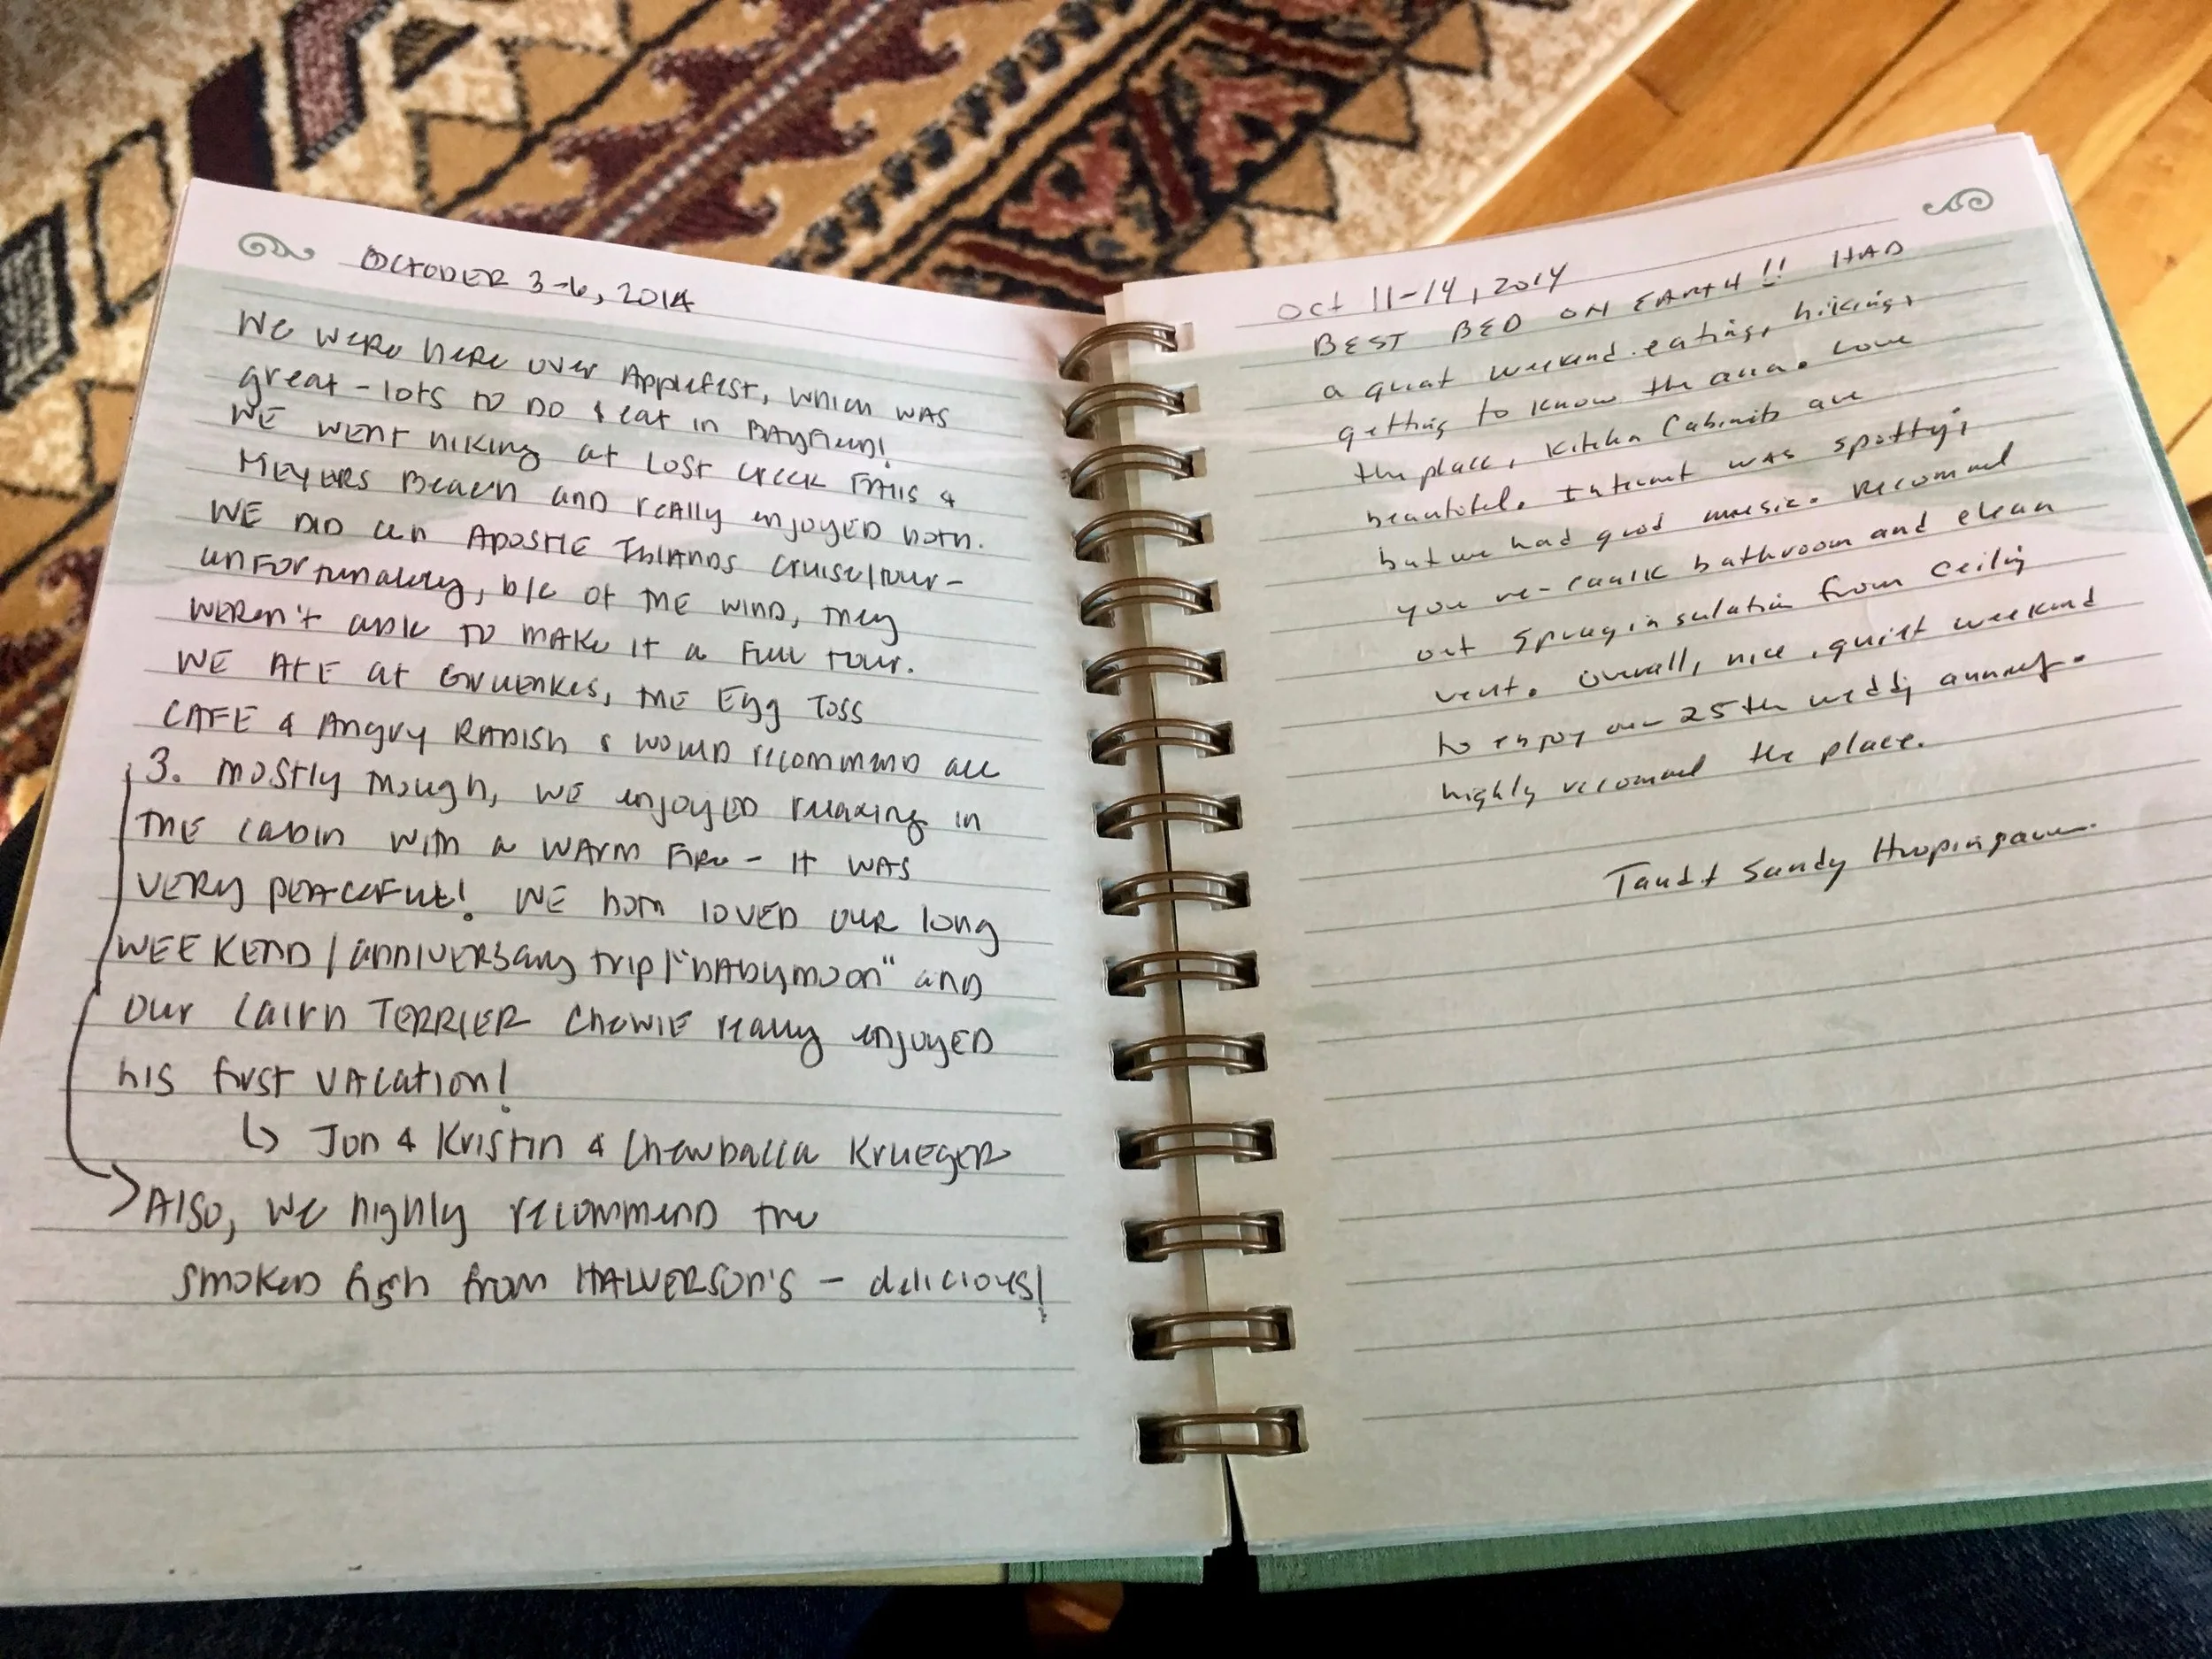 OCTOBER 3-6, 2014
WE WERE HERE OVER Applefest, WHICH WAS
great - lots TO DO & eat in BAYfield!
WE WENT HIKING at LOST CREEK FALLS &
MEYERS BEACH AND rEALLY enjoyED both.
WE DID an APOSTLE ISLANDS cruise/tour -
unfortunately, b/c of THE WIND, they
WEREN'T able TO MAKE IT a FULL TOUR.
WE ATE at GRUENKES, THE Egg TOSS
CAFE & Angry RADISH & WOULD recommend all
3. MOSTLY though, WE enjoyED relaxing in
THE cabin WITH a WARM FIRE - IT WAS
VERY PEACEFUL! WE both LOVED OUR long
WEEKEND / anniversary trip/"babymoon" and
our Cairn TERRIER CHEWIE really enjoyED
his first VACation!
↳ Jon & Kristin & Chewbacca KRUEGER
Also, We highly recommend the
smoked fish from HALVERSON'S - delicious!
Oct 11-14, 2014
BEST BED ON EARTH!! HAD
a great weekend eating, hiking,
getting to know the area. Love
the place, Kitchen Cabinets are
beautiful. Internet was spotty;
but we had good music. Recommend
you re-caulk bathroom and clean
out spray insulation from ceiling
vent. Overall, nice, quiet weekend
to enjoy our 25th wedding
highly recommend the place.
Sandy